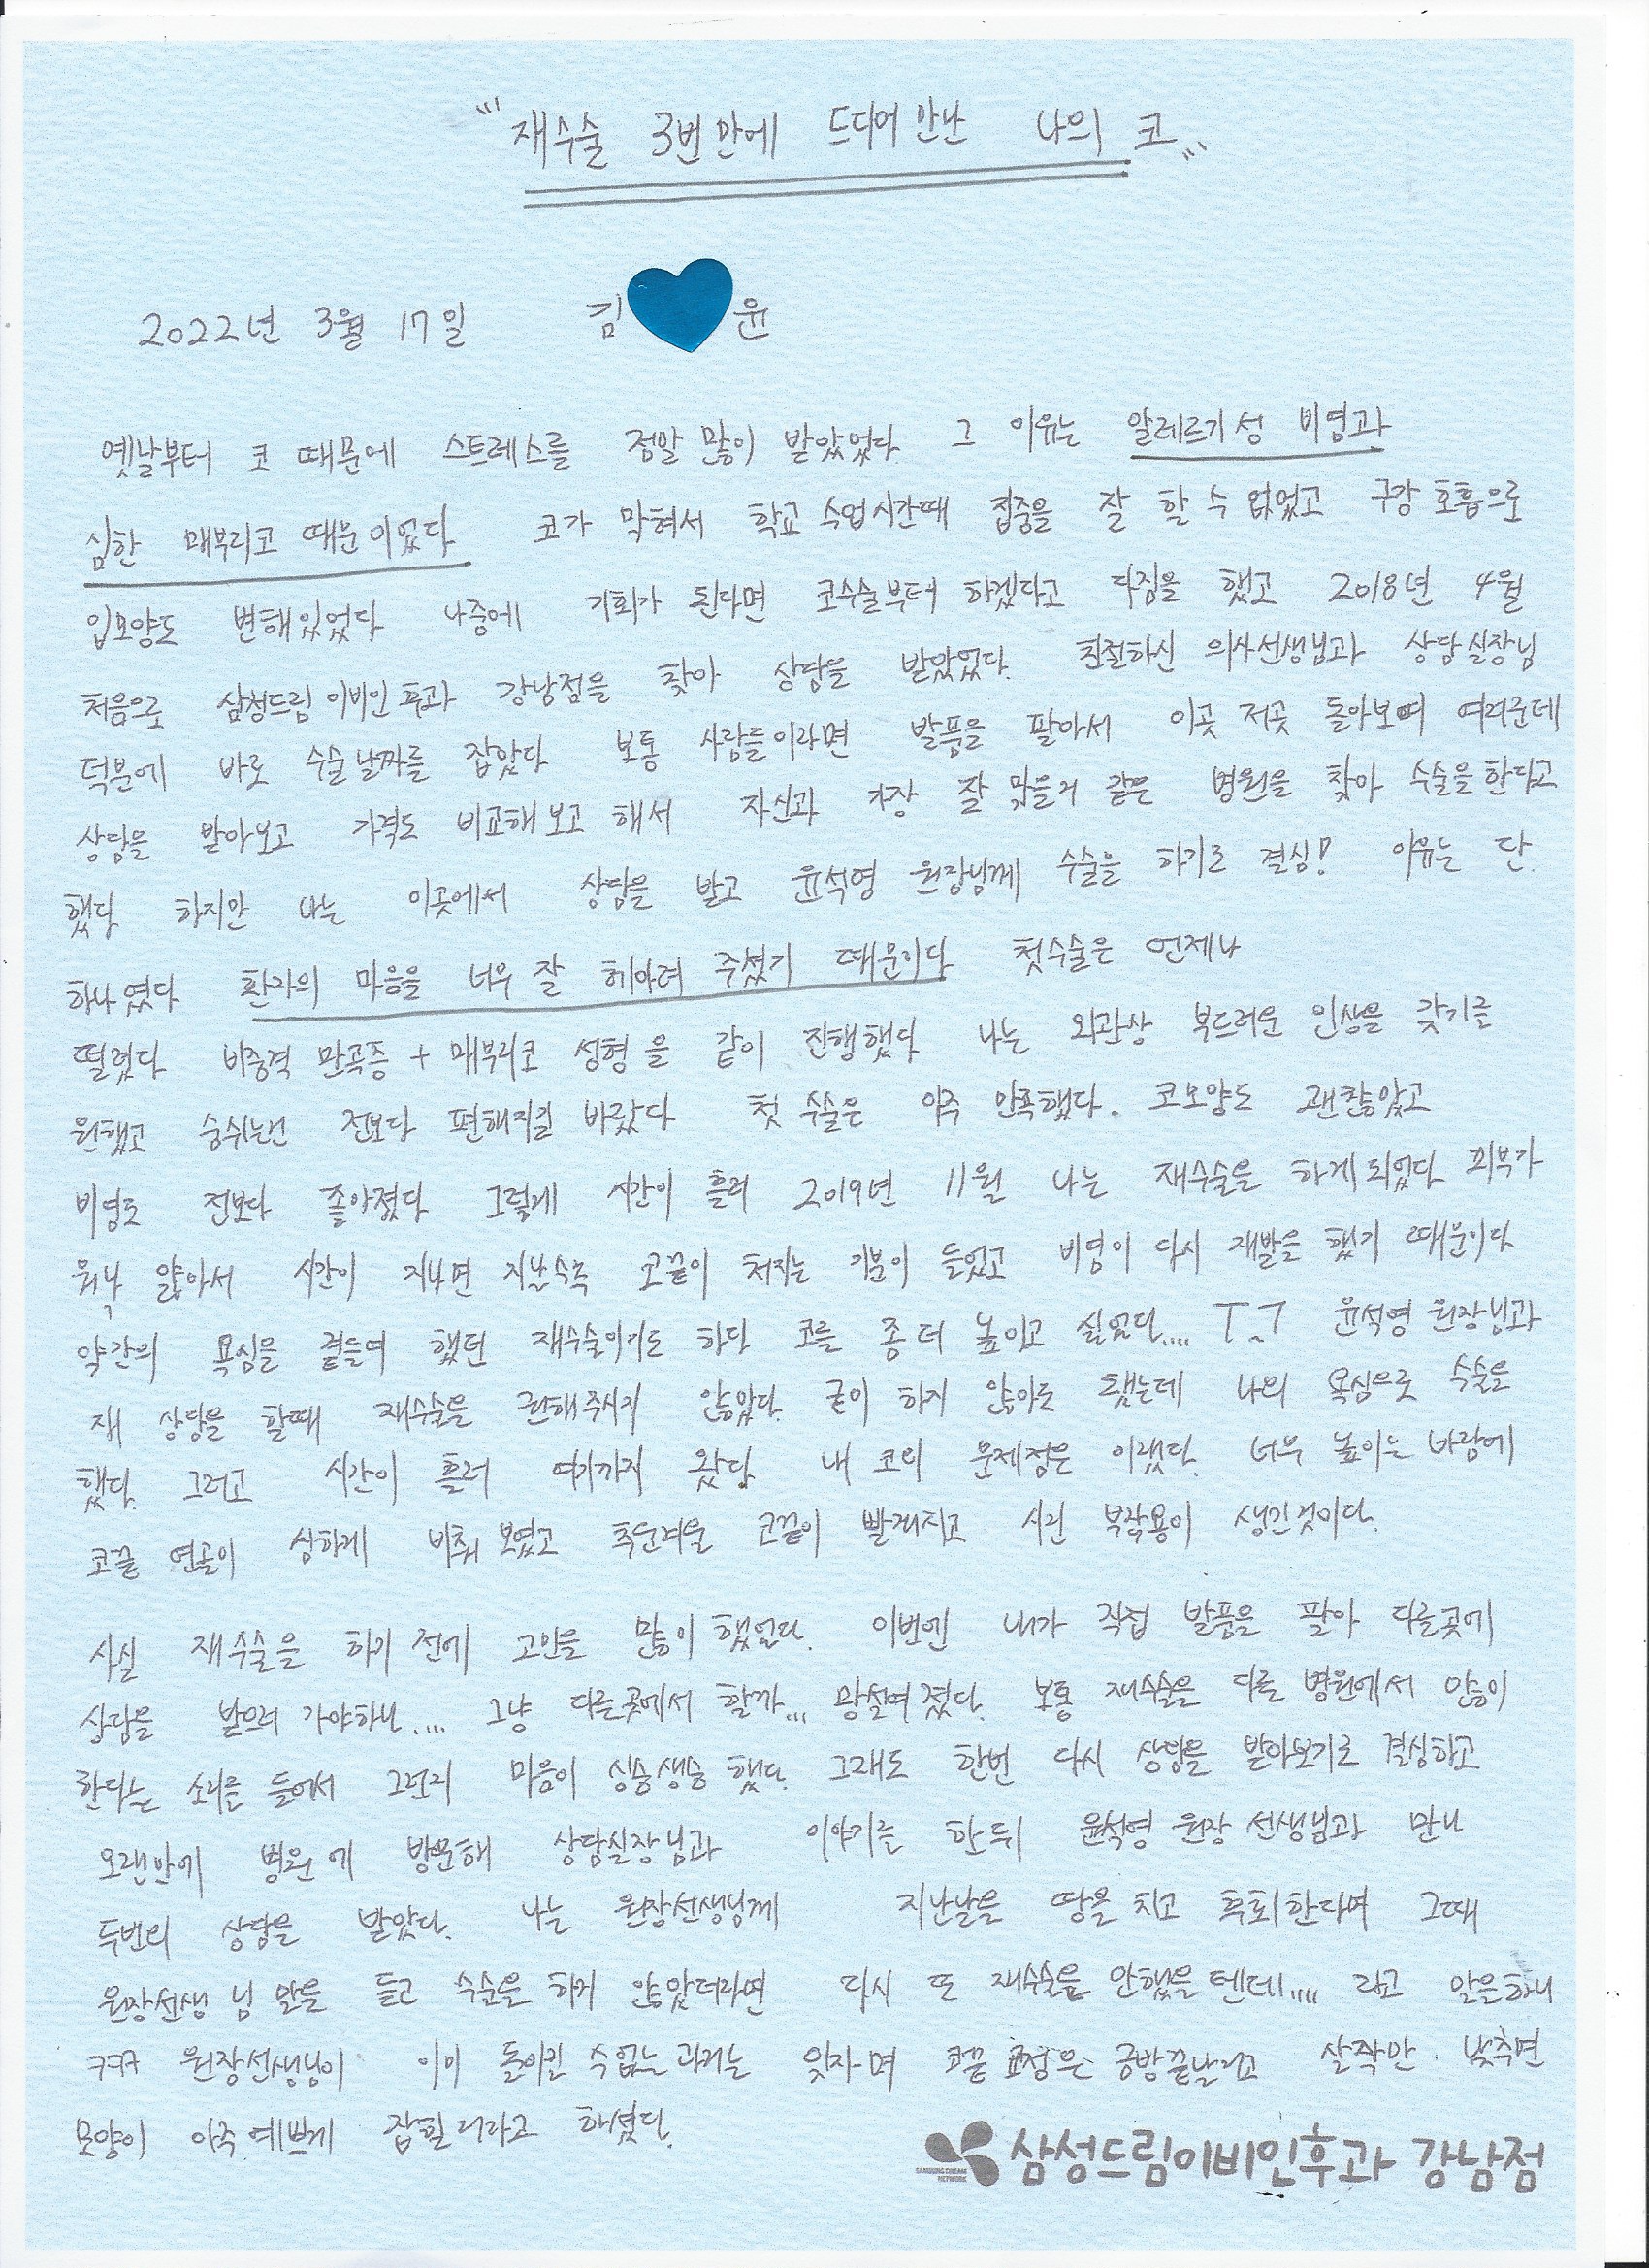 재수술 3번만에 드디어 만난 나의 코
2022년 3월 17일 김 윤
옛날부터 코 때문에 스트레스를 정말 많이 받았었다 그 이유는 알레르기성 비염과
심한 매부리코 때문이었다 코가 막혀서 학교 수업시간때 집중을 잘 할 수 없었고 구강호흡으로
입모양도 변해있었다 나중에 기회가 된다면 코수술부터 하겠다고 다짐을 했고 2018년 4월
처음으로 삼성드림이비인후과 강남점을 찾아 상담을 받았었다. 친절하신 의사선생님과 상담실장님
덕분에 바로 수술날짜를 잡았다 보통 사람들이라면 발품을 팔아서 이곳 저곳 돌아보며 여러군데
상담을 받아보고 가격도 비교해보고 해서 자신과 가장 잘 맞을거 같은 병원을 찾아 수술을한다고
했다 하지만 나는 이곳에서 상담을 받고 윤석영 원장님께 수술을 하기로 결심! 이유는 단.
하나였다 환자의 마음을 너무 잘 헤아려 주셨기 때문이다 첫수술은 언제나
떨렸다 비중격 만곡증 + 매부리코 성형을 같이 진행했다 나는 외관상 부드러운 인상을 갖기를
원했고 숨쉬는건 전보다 편해지길 바랐다 첫 수술은 아주 만족했다. 코모양도 괜찮았고
비염도 전보다 좋아졌다 그렇게 시간이 흘러 2019년 11월 나는 재수술을 하게되었다 피부가
워낙 얇아서 시간이 지나면 지날수록 코끝이 쳐지는 기분이 들었고 비염이 다시 재발을 했기 때문이다
약간의 욕심을 곁들여 했던 재수술이기도 하다 코를 좀 더 높이고 싶었다.... T_T 윤석영 원장님과
재 상담을 할때 재수술을 권해주시지 않았다. 굳이 하지 않아도 됐는데 나의 욕심으로 수술을
했다. 그러고 시간이 흘러 여기까지 왔다 내 코의 문제점은 이랬다. 너무 높이는 바람에
코끝 연골이 심하게 비춰 보였고 추운겨울 코끝이 빨개지고 시린 부작용이 생긴것이다.
사실 재수술을 하기 전에 고민을 많이 했었다. 이번엔 내가 직접 발품을 팔아 다른곳에
상담을 받으러 가야하나.... 그냥 다른곳에서 할까... 망설여졌다. 보통 재수술을 다른 병원에서 많이
한다는 소리를 들어서 그런지 마음이 싱숭생숭 했다. 그래도 한번 다시 상담을 받아보기로 결심하고
오랜만에 병원에 방문해 상담실장님과 이야기를 한뒤 윤석영 원장 선생님과 만나
두번의 상담을 받았다. 나는 원장선생님께 지난날을 땅을 치고 후회한다며 그때
원장선생님 말을 듣고 수술을 하지 않았더라면 다시 또 재수술을 안했을텐데.... 라고 말을하니
ㅋㅋㅋ 원장선생님이 이미 돌이킬 수없는 과거는 잊자며 코끝 교정은 금방끝날거고 살짝만. 낮추면
모양이 아주 예쁘게 잡힐거라고 하셨다.
SAMSUNG DREAM NETWORK 삼성드림이비인후과 강남점